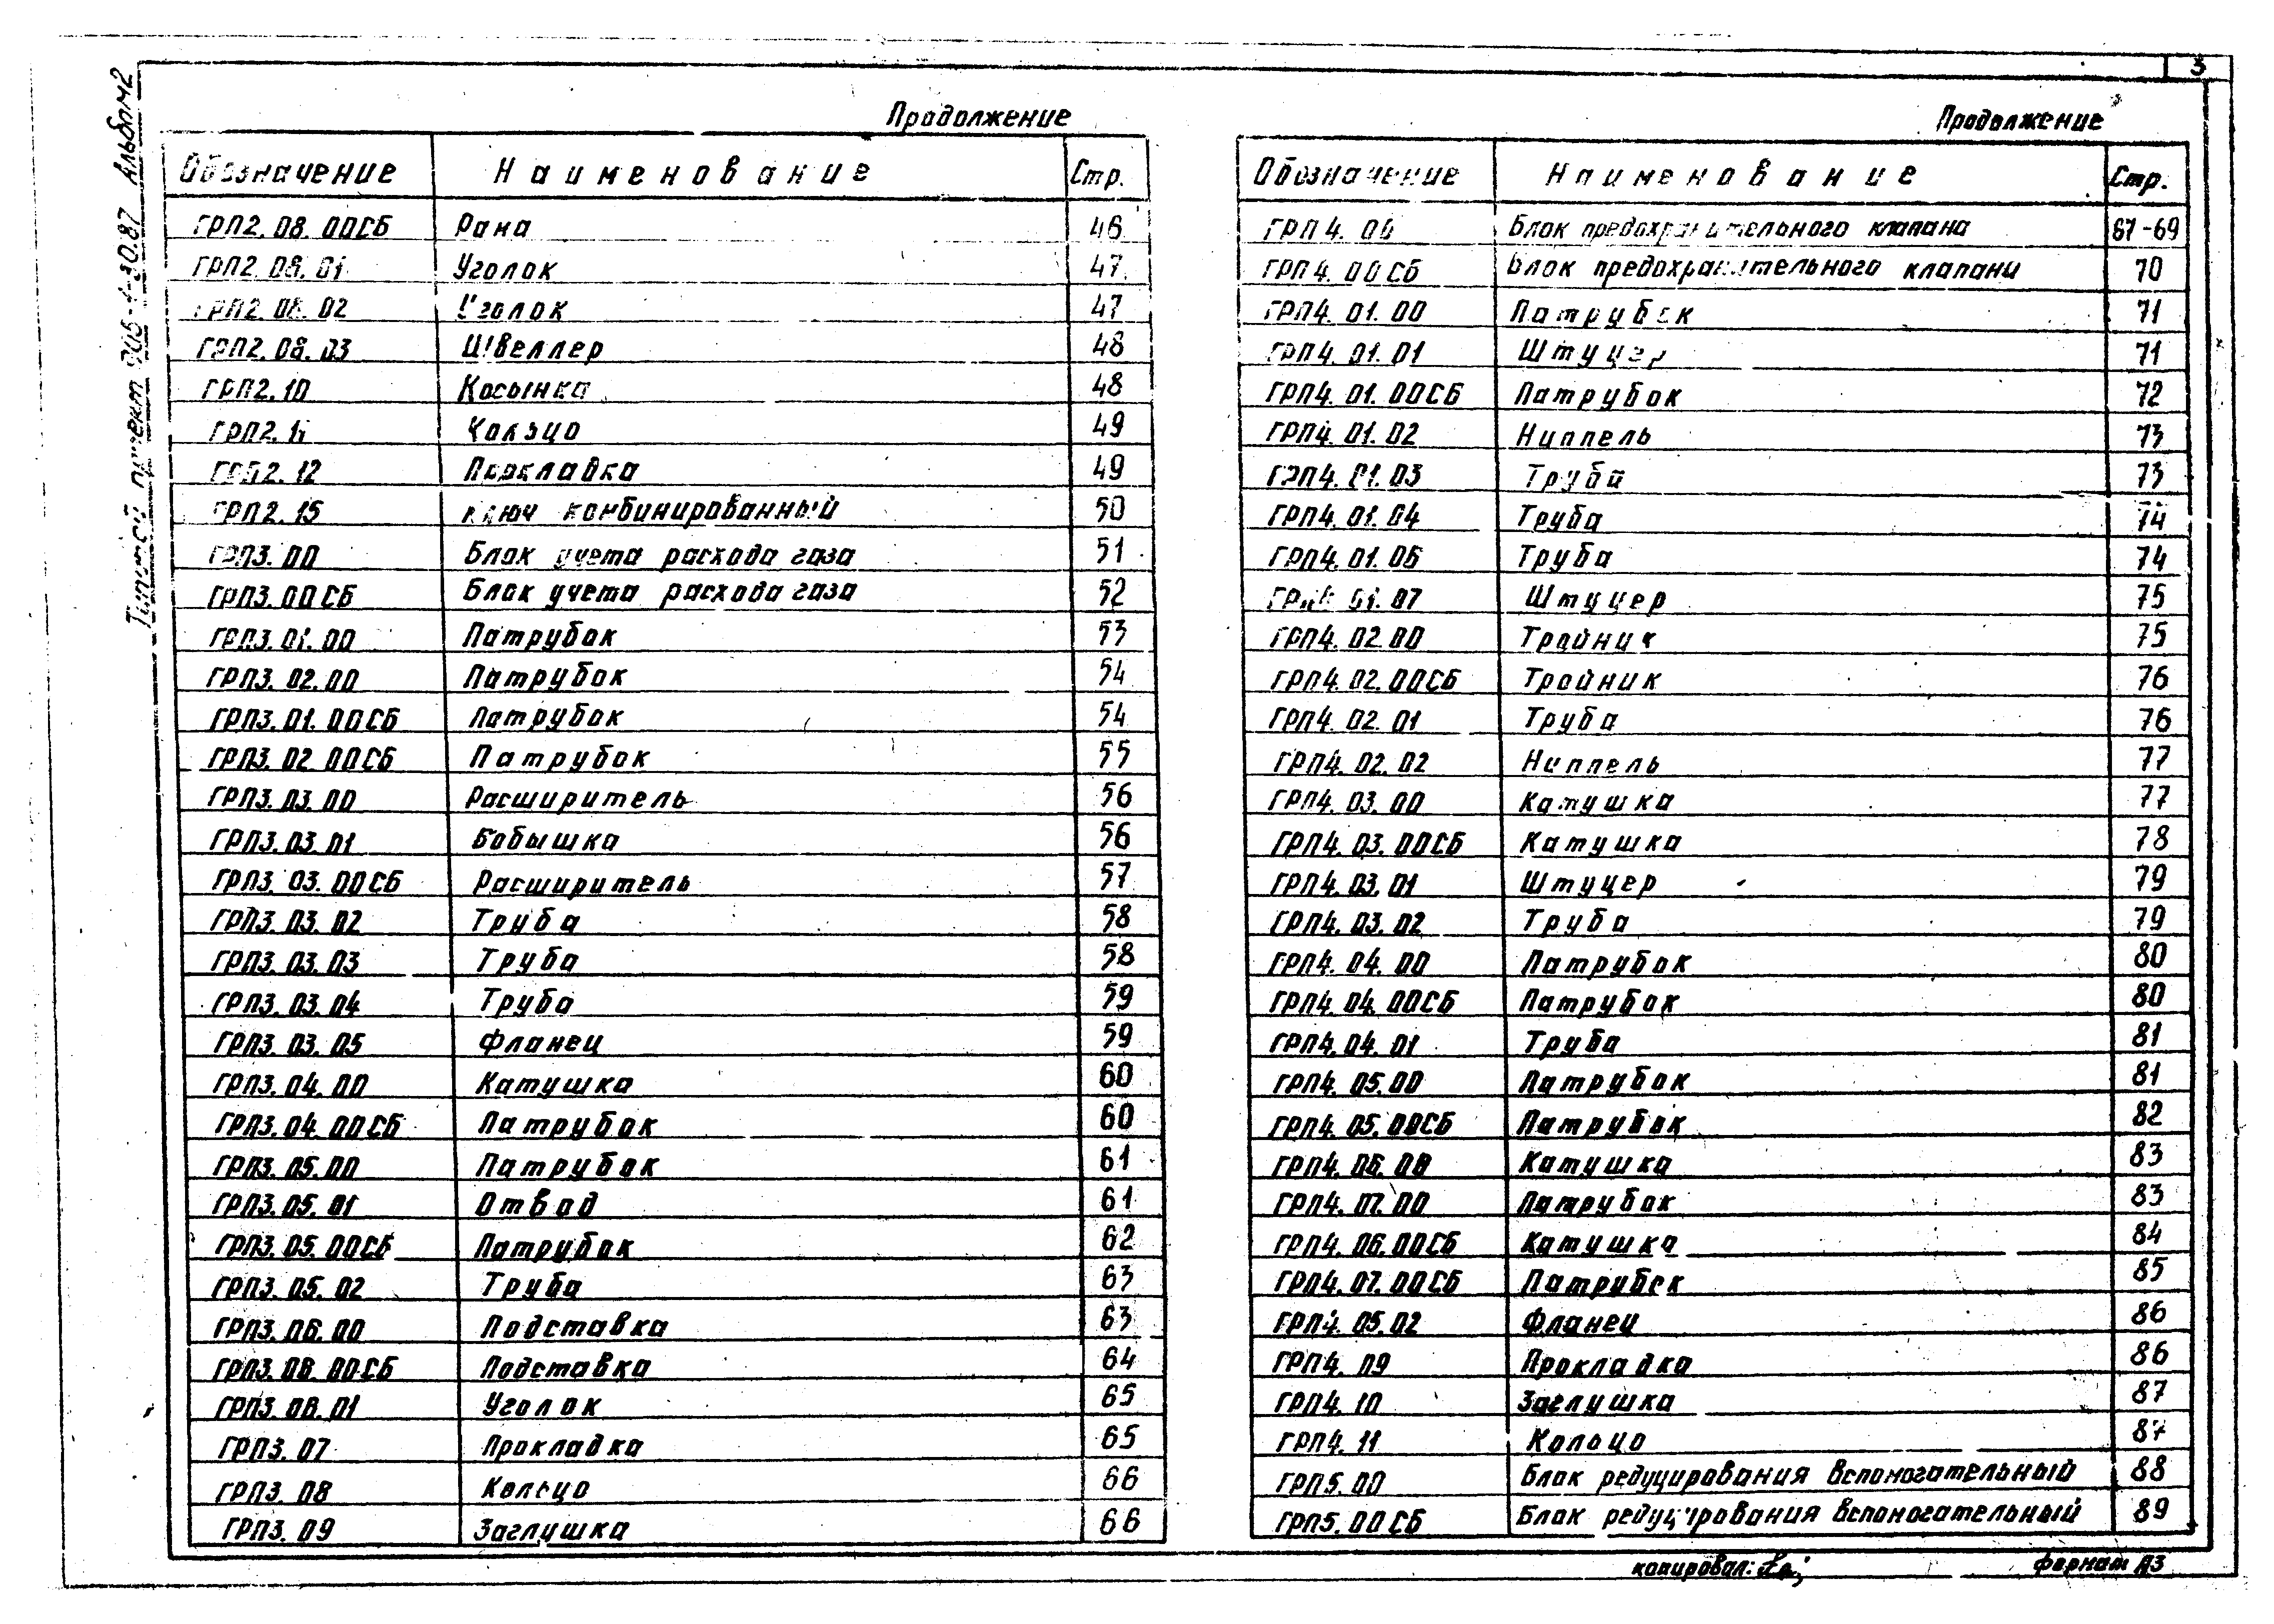 3
Альбом 2
Продолжение
Обозначение Наименование Стр.
ГРП2. 08. 00СБ Рама 46
ГРП2. 08. 01 Уголок 47
ГРП2. 08. 02 Уголок 47
ГРП2. 08. 03 Швеллер 48
ГРП2. 10 Косынка 48
ГРП2. 11 Кольцо 49
ГРП2. 12 Прокладка 49
ГРП2. 15 Ключ комбинированный 50
ГРП3. 00 Блок учета расхода газа 51
ГРП3. 00СБ Блок учета расхода газа 52
ГРП3. 01. 00 Патрубок 53
ГРП3. 02. 00 Патрубок 54
ГРП3. 01. 00СБ Патрубок 54
ГРП3. 02. 00СБ Патрубок 55
ГРП3. 03. 00 Расширитель 56
ГРП3. 03. 01 Бобышка 56
ГРП3. 03. 00СБ Расширитель 57
ГРП3. 03. 02 Труба 58
ГРП3. 03. 03 Труба 58
ГРП3. 03. 04 Труба 59
ГРП3. 03. 05 Фланец 59
ГРП3. 04. 00 Катушка 60
ГРП3. 04. 00СБ Патрубок 60
ГРП3. 05. 00 Патрубок 61
ГРП3. 05. 01 Отвод 61
ГРП3. 05. 00СБ Патрубок 62
ГРП3. 05. 02 Труба 63
ГРП3. 06. 00 Подставка 63
ГРП3. 06. 00СБ Подставка 64
ГРП3. 06. 01 Уголок 65
ГРП3. 07 Прокладка 65
ГРП3. 08 Кольцо 66
ГРП3. 09 Заглушка 66
Продолжение
Обозначение Наименование Стр.
ГРП4. 00 Блок предохранительного клапана 67-69
ГРП4. 00СБ Блок предохранительного клапана 70
ГРП4. 01. 00 Патрубок 71
ГРП4. 01. 01 Штуцер 71
ГРП4. 01. 00СБ Патрубок 72
ГРП4. 01. 02 Ниппель 73
ГРП4. 01. 03 Труба 73
ГРП4. 01. 04 Труба 74
ГРП4. 01. 06 Труба 74
ГРП4. 01. 07 Штуцер 75
ГРП4. 02. 00 Тройник 75
ГРП4. 02. 00СБ Тройник 76
ГРП4. 02. 01 Труба 76
ГРП4. 02. 02 Ниппель 77
ГРП4. 03. 00 Катушка 77
ГРП4. 03. 00СБ Катушка 78
ГРП4. 03. 01 Штуцер 79
ГРП4. 03. 02 Труба 79
ГРП4. 04. 00 Патрубок 80
ГРП4. 04. 00СБ Патрубок 80
ГРП4. 04. 01 Труба 81
ГРП4. 05. 00 Патрубок 81
ГРП4. 05. 00СБ Патрубок 82
ГРП4. 06. 00 Катушка 83
ГРП4. 07. 00 Патрубок 83
ГРП4. 06. 00СБ Катушка 84
ГРП4. 07. 00СБ Патрубок 85
ГРП4. 05. 02 Фланец 86
ГРП4. 09 Прокладка 86
ГРП4. 10 Заглушка 87
ГРП4. 11 Кольцо 87
ГРП5. 00 Блок редуцирования вспомогательный 88
ГРП5. 00СБ Блок редуцирования вспомогательный 89
копировал:
формат А3